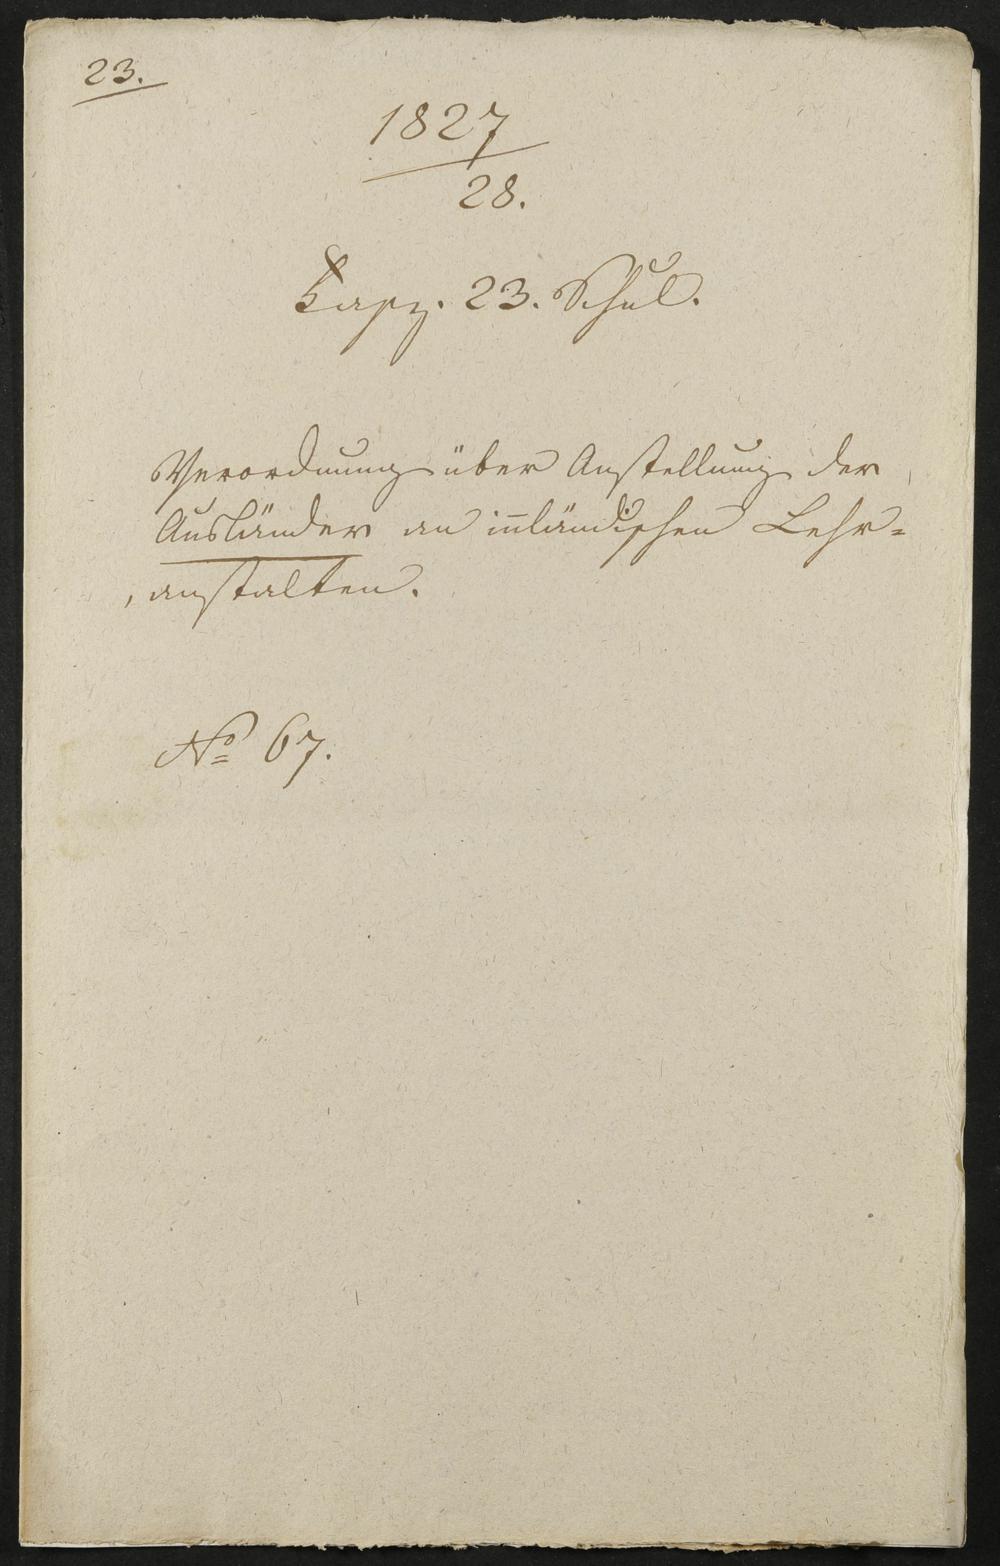 23.
1827
28.
Kapz. 23. Schul.
Verordnung über Anstellung der
Ausländer an inländischen Lehr=
anstalten.
No 67.